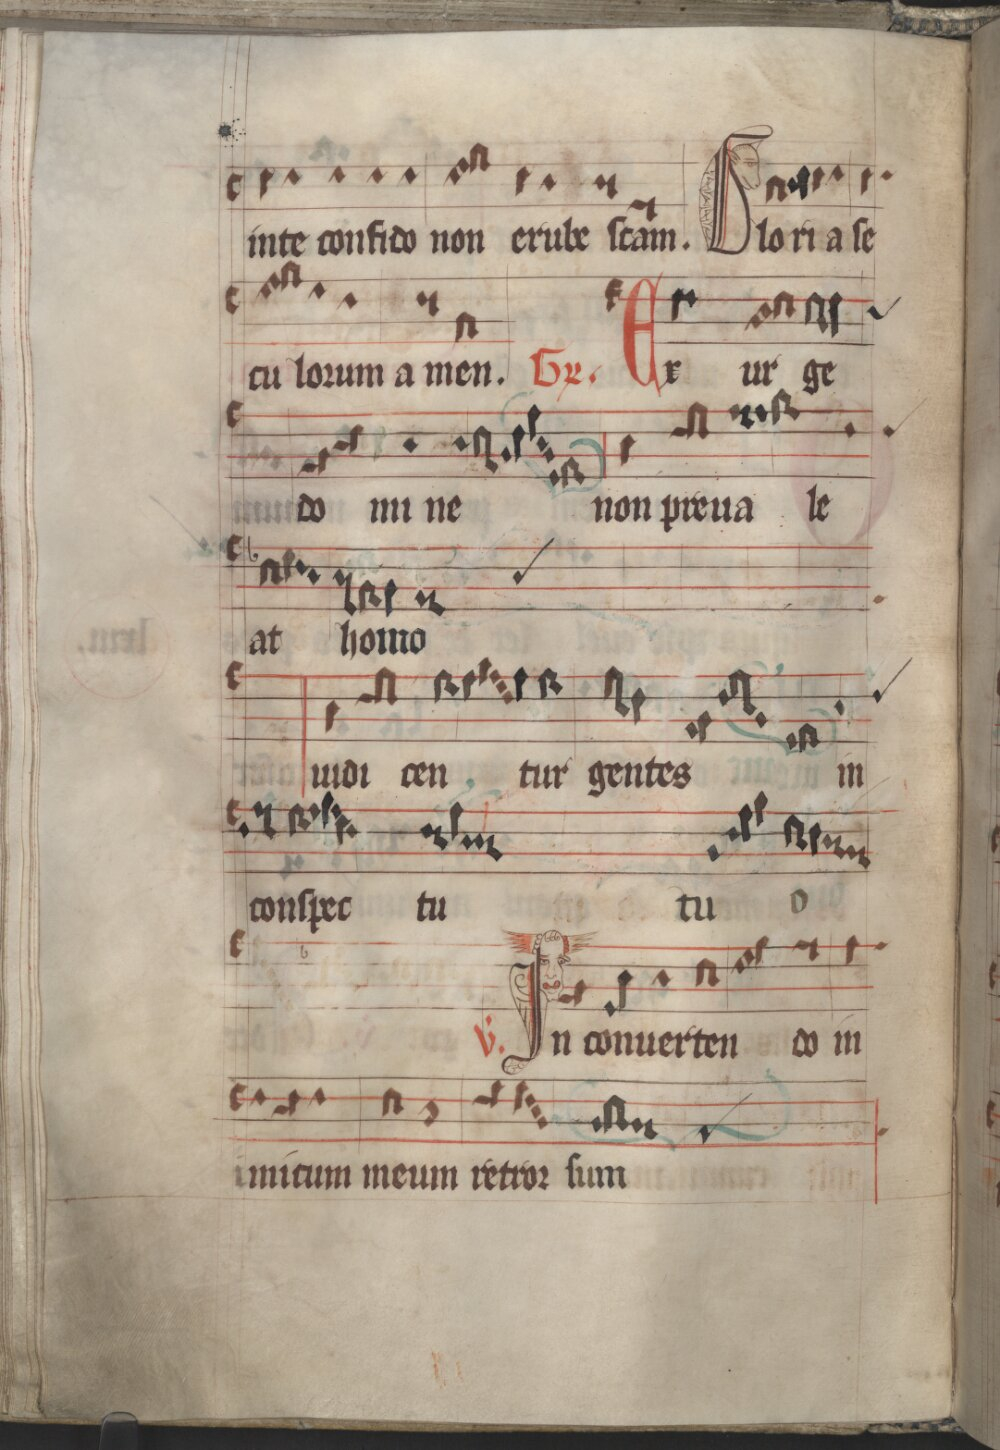 inte confido non erube scam. Glo ri a se
cu lorum a men. Gr. Ex ur ge
do mi ne non preua le
at homo
iudi cen tur gentes in
conspec tu tu o
V. In conuerten do in
imicum meum retror sum